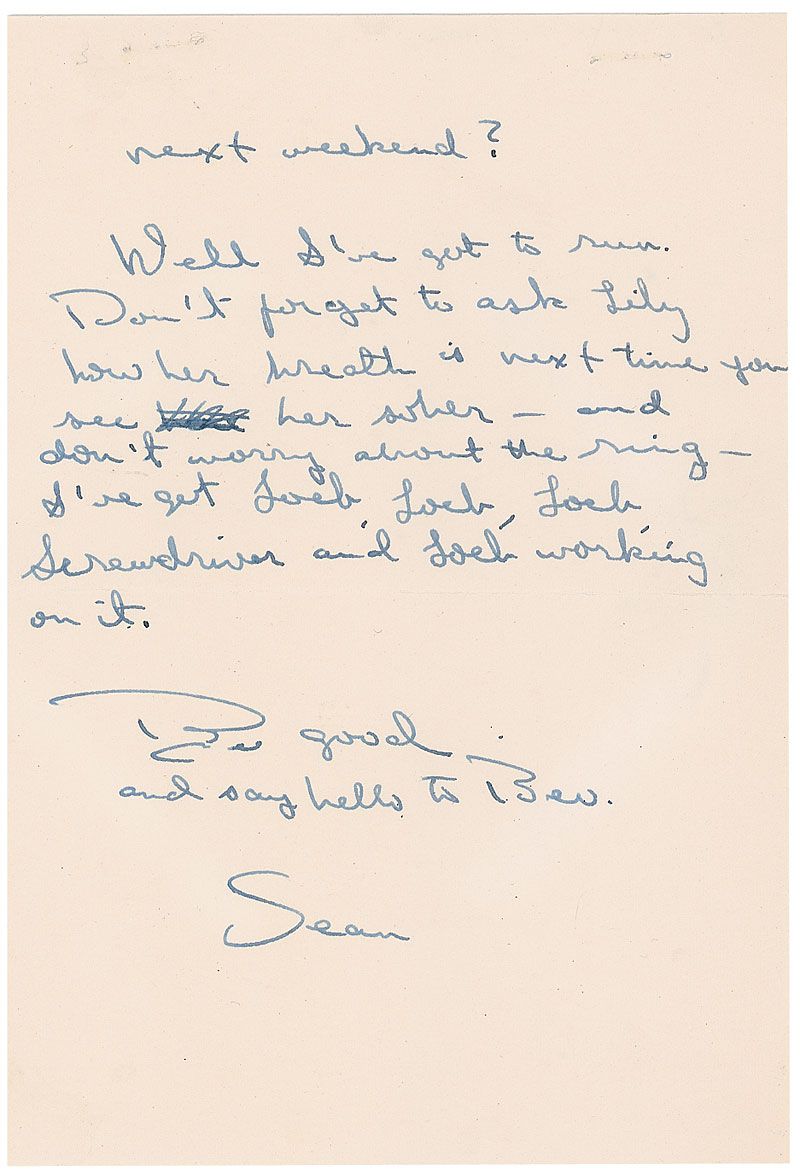 next weekend?
Well I've got to run.
Don't forget to ask Lily
how her breath is next time you
see her sober — and
don't worry about the ring —
I've got Lock, Lock, Lock
Screwdriver and Lock working
on it.
Be good
and say hello to Bev.
Sean